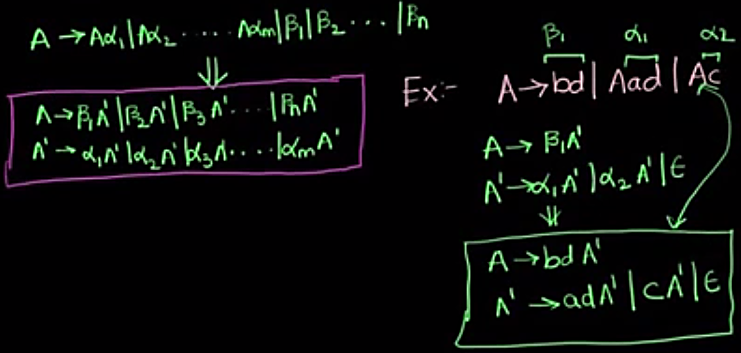 A → Aα₁ | Aα₂ ..... Aαm | β₁ | β₂ ... | βn
⇓
A → β₁A' | β₂A' | β₃A' .... | βnA'
A' → α₁A' | α₂A' | α₃A .... | αmA'
β₁ α₁ α₂
Ex:- A → bd | Aad | Ac
A → β₁A'
A' → α₁A' | α₂A' | ε
⇓
A → bdA'
A' → adA' | cA' | ε